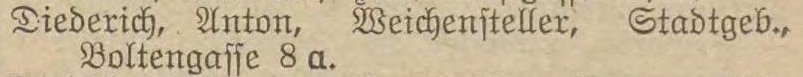 Diederich, Anton, Weichensteller, Stadtgeb.,
Boltengasse 8 a.